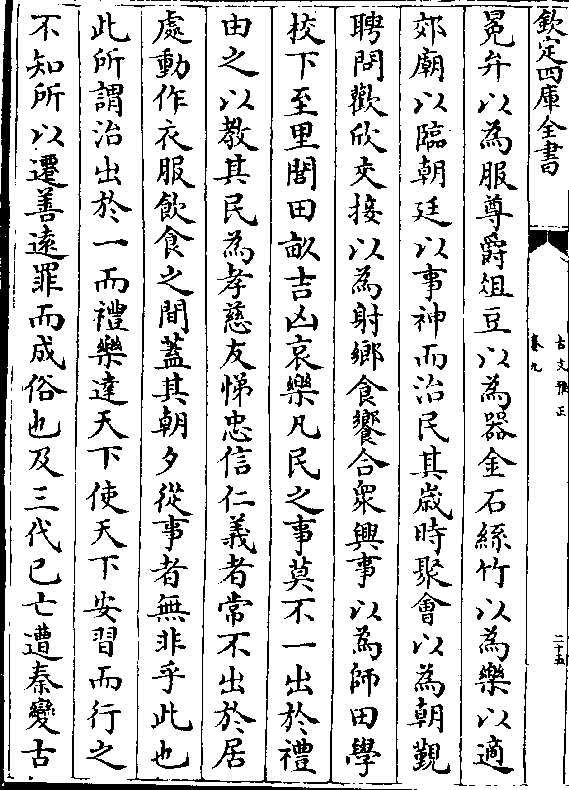 欽定四庫全書
古文雅正
卷九
二十五
冕弁以為服尊爵俎豆以為器金石絲竹以為樂以適
郊廟以臨朝廷以事神而治民其歲時聚會以為朝覲
聘問歡欣交接以為射鄉食饗合衆興事以為師田學
校下至里閭田畝吉凶哀樂凡民之事莫不一出於禮
由之以教其民為孝慈友悌忠信仁義者常不出於居
處動作衣服飲食之間蓋其朝夕從事者無非乎此也
此所謂治出於一而禮樂達天下使天下安習而行之
不知所以遷善遠罪而成俗也及三代已亡遭秦變古